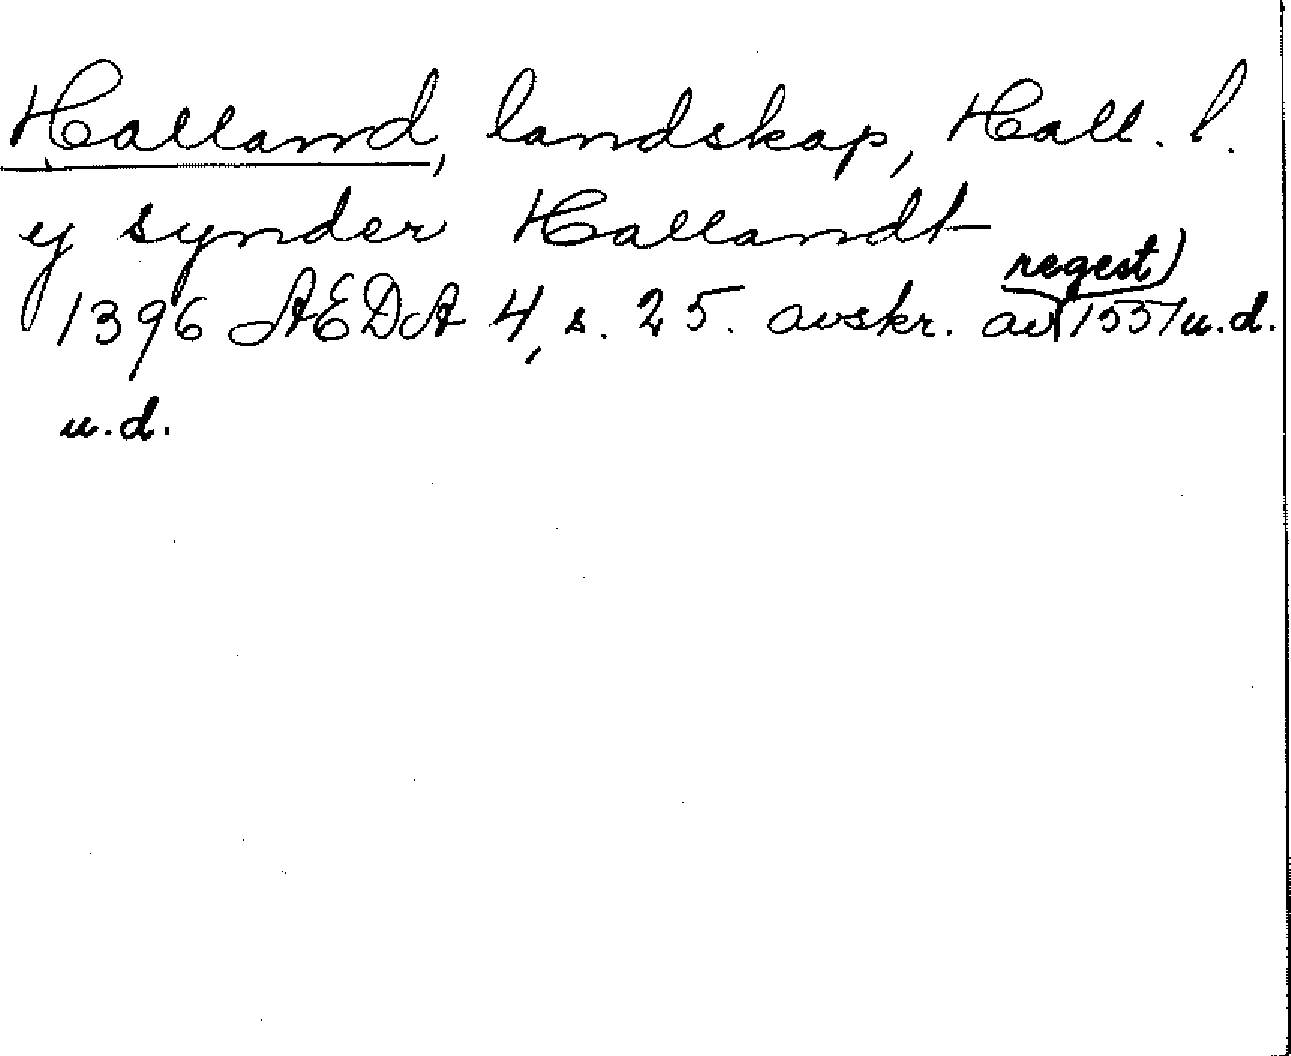 Halland, landskap, Hall. l.
y synder Hallandt
regest)
1396 AEDA 4, s. 25. avskr. av 1551 u.d.
u.d.